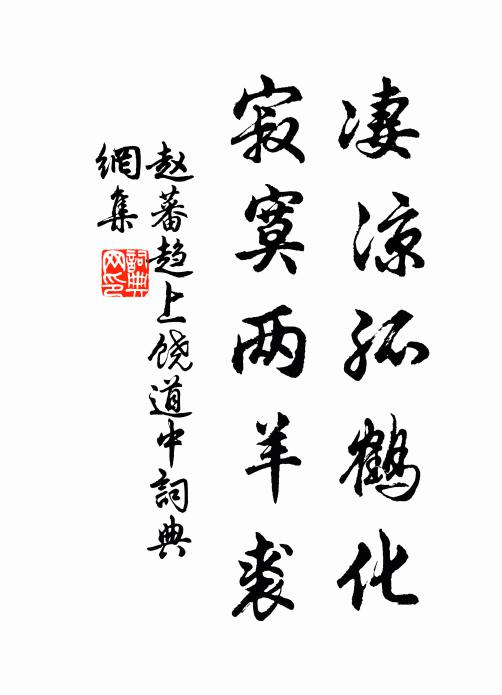 凄凉孤鹤化
寂寞两羊裘
赵蕃趋上饶道中词典
網集
詞典
网印